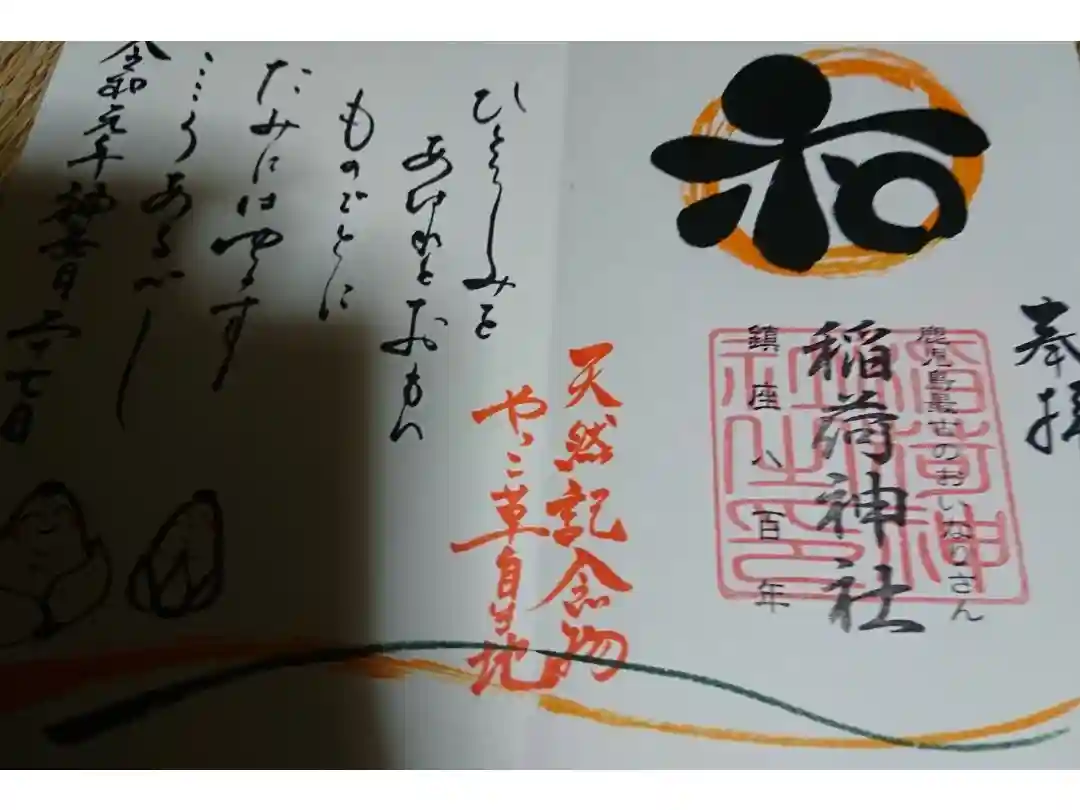 奉拝
和
鹿児島最古のおいなりさん
稲荷神社
鎮座八百年
稲荷神
社之印
天然記念物
やっこ草自生地
あはれとおもへ
ものごとに
たみにはゆるす
こゝろあるべし
令和元年神無月二十七日